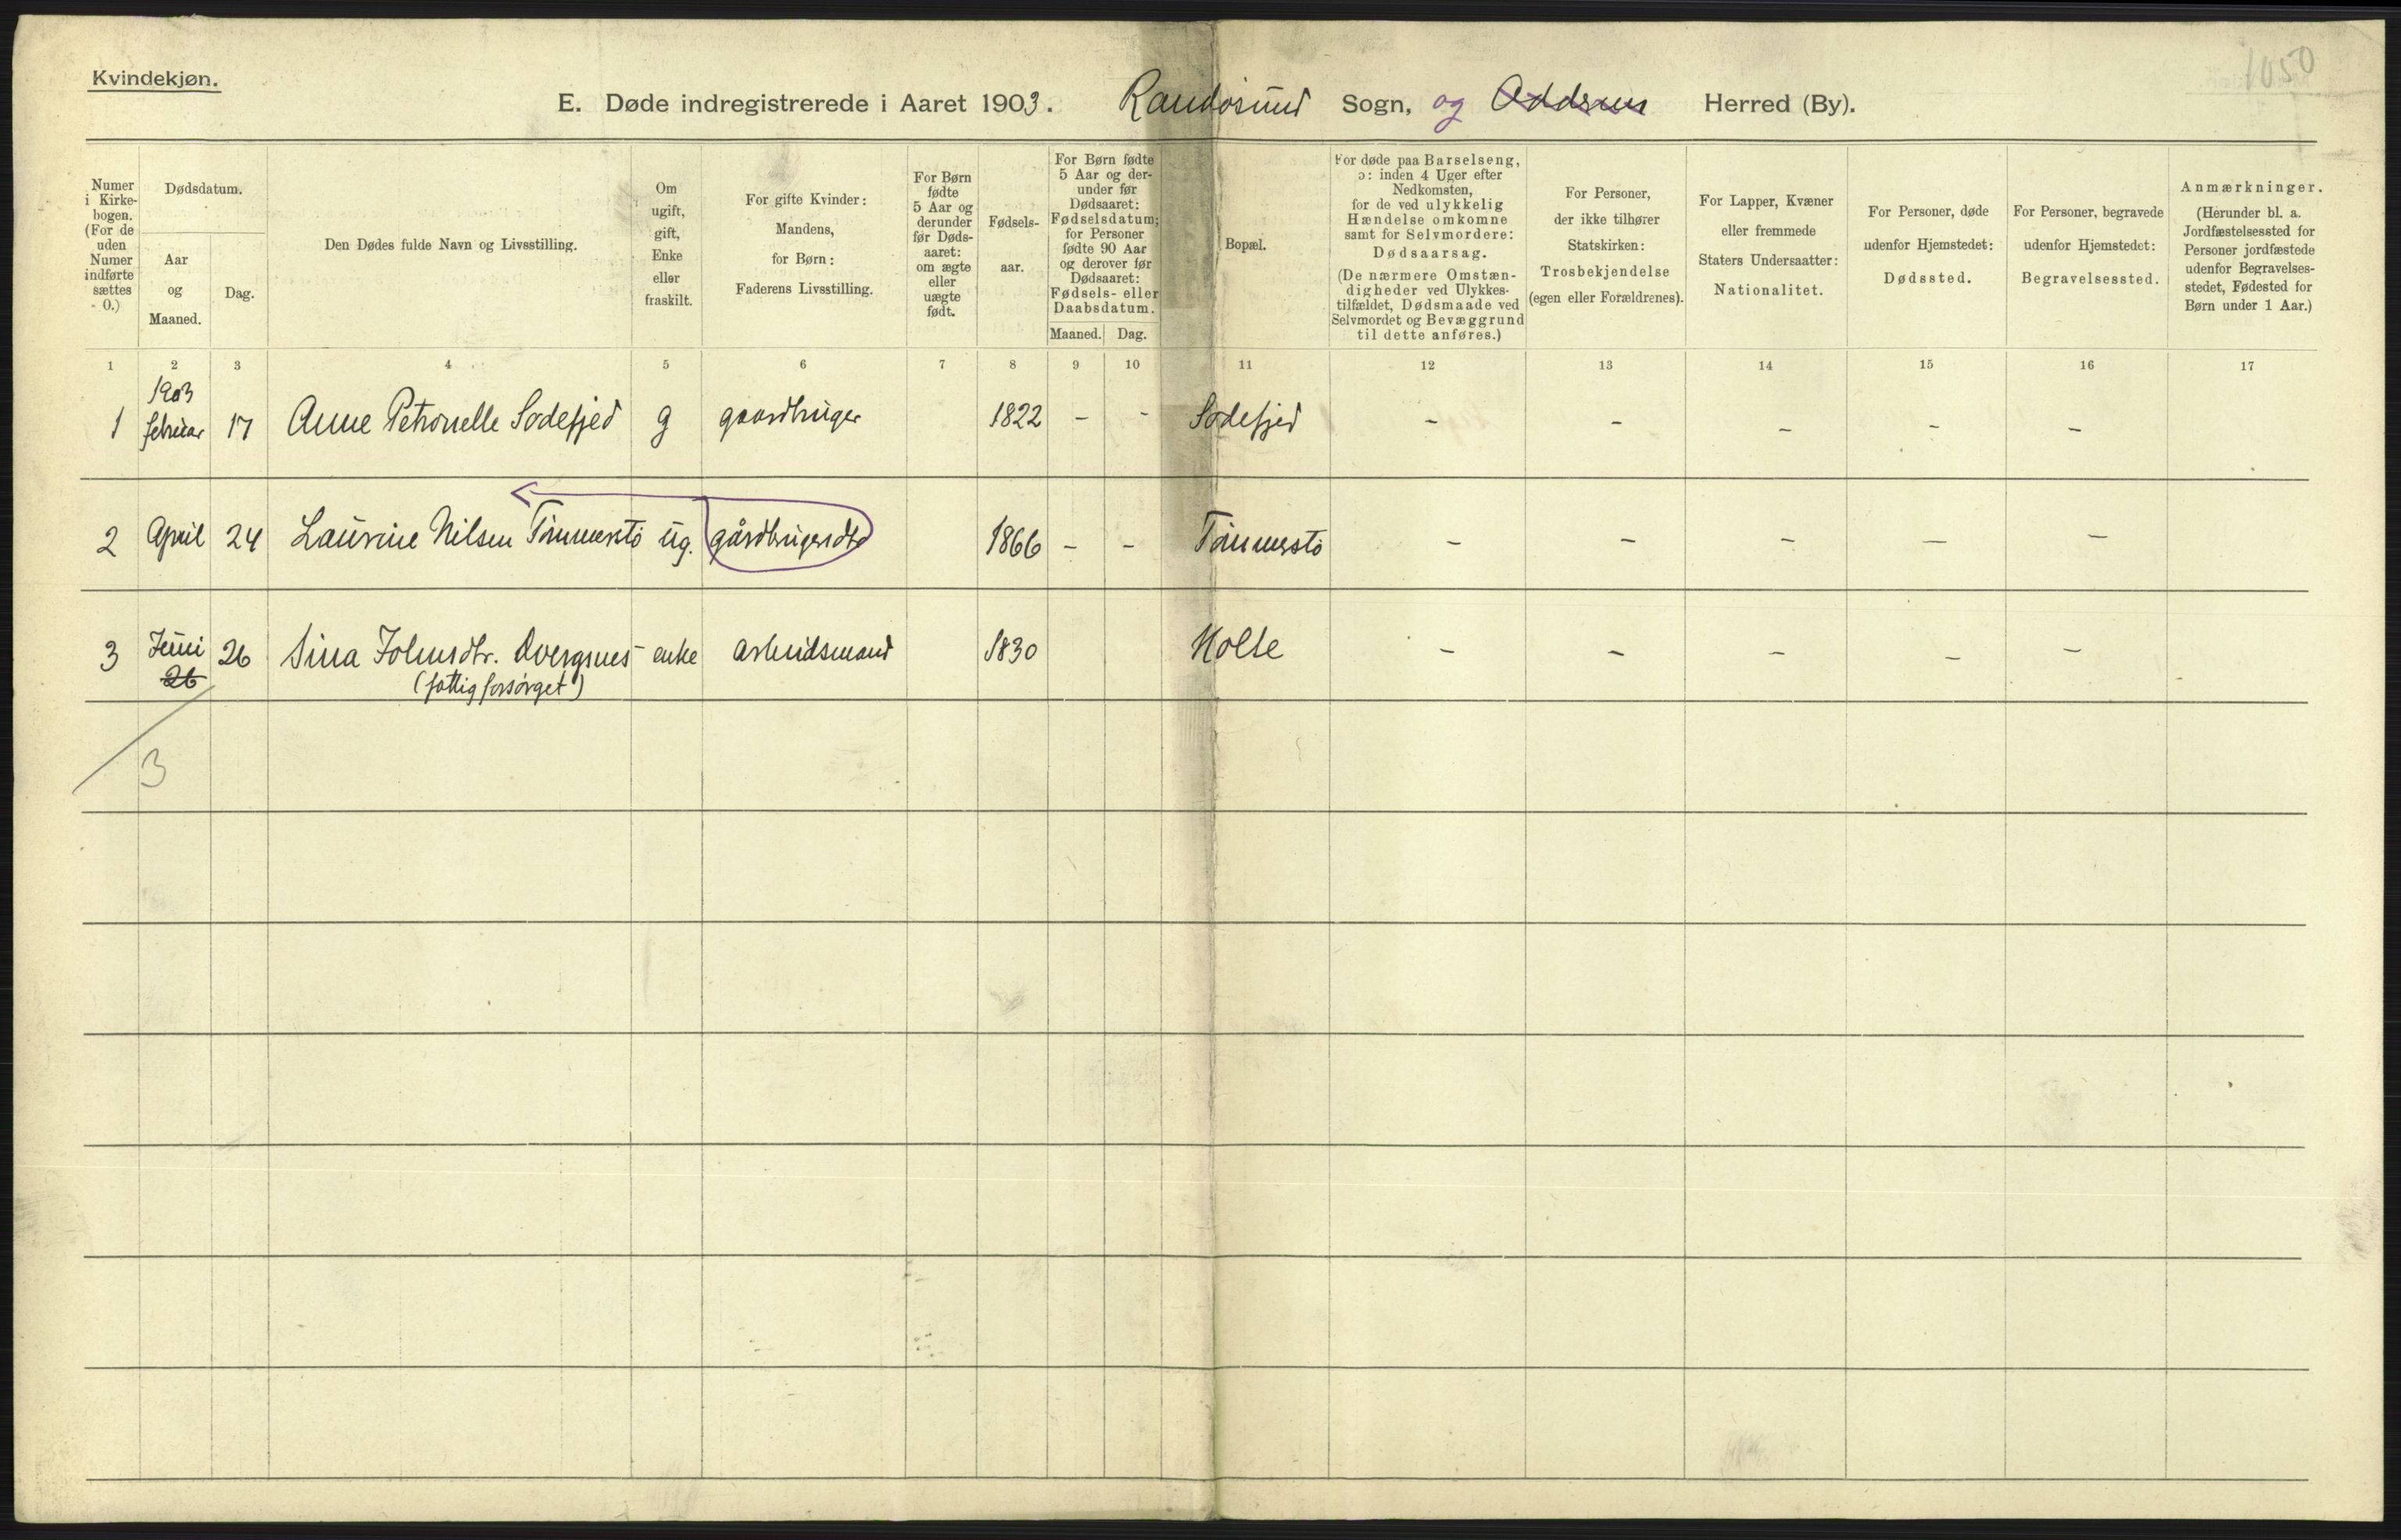 Kvindekjøn.
1050
E. Døde indregistrerede i Aaret 1903. Randøsund Sogn, og Herred (By).
Numer i Kirke-bogen. (For de uden Numer indførte sættes - 0.)
Dødsdatum.
Aar og Maaned.
Dag.
Den Dødes fulde Navn og Livsstilling.
Om ugift, gift, Enke eller fraskilt.
For gifte Kvinder: Mandens, for Børn: Faderens Livsstilling.
For Børn fødte 5 Aar og derunder før Døds-aaret: om ægte eller uægte født.
Fødsels-aar.
For Børn fødte 5 Aar og der-under før Dødsaaret: Fødselsdatum; for Personer fødte 90 Aar og derover før Dødsaaret: Fødsels- eller Daabsdatum.
Maaned. Dag.
Bopæl.
For døde paa Barselseng, ɔ: inden 4 Uger efter Nedkomsten, for de ved ulykkelig Hændelse omkomne samt for Selvmordere: Dødsaarsag. (De nærmere Omstæn-digheder ved Ulykkes-tilfældet, Dødsmaade ved Selvmordet og Bevæggrund til dette anføres.)
For Personer, der ikke tilhører Statskirken: Trosbekjendelse (egen eller Forældrenes).
For Lapper, Kvæner eller fremmede Staters Undersaatter: Nationalitet.
For Personer, døde udenfor Hjemstedet: Dødssted.
For Personer, begravede udenfor Hjemstedet: Begravelsessted.
Anmærkninger. (Herunder bl. a. Jordfæstelsessted for Personer jordfæstede udenfor Begravelses-stedet, Fødested for Børn under 1 Aar.)
1 2 3 4 5 6 7 8 9 10 11 12 13 14 15 16 17
1903
1 februar 17 Anne Petronelle Sodefjed g gaardbruger 1822 - - Sodefjed - - - - -
2 April 24 Laurine Nilsen Tømmerstö ug. gårdbrugerdtr 1866 - - Tømmerstö - - - - -
3 Juni 26 Sina Johnsdtr. Dvergsnes enke arbeidsmand 1830 Holte - - - - -
26 (fattigforsørget)
3